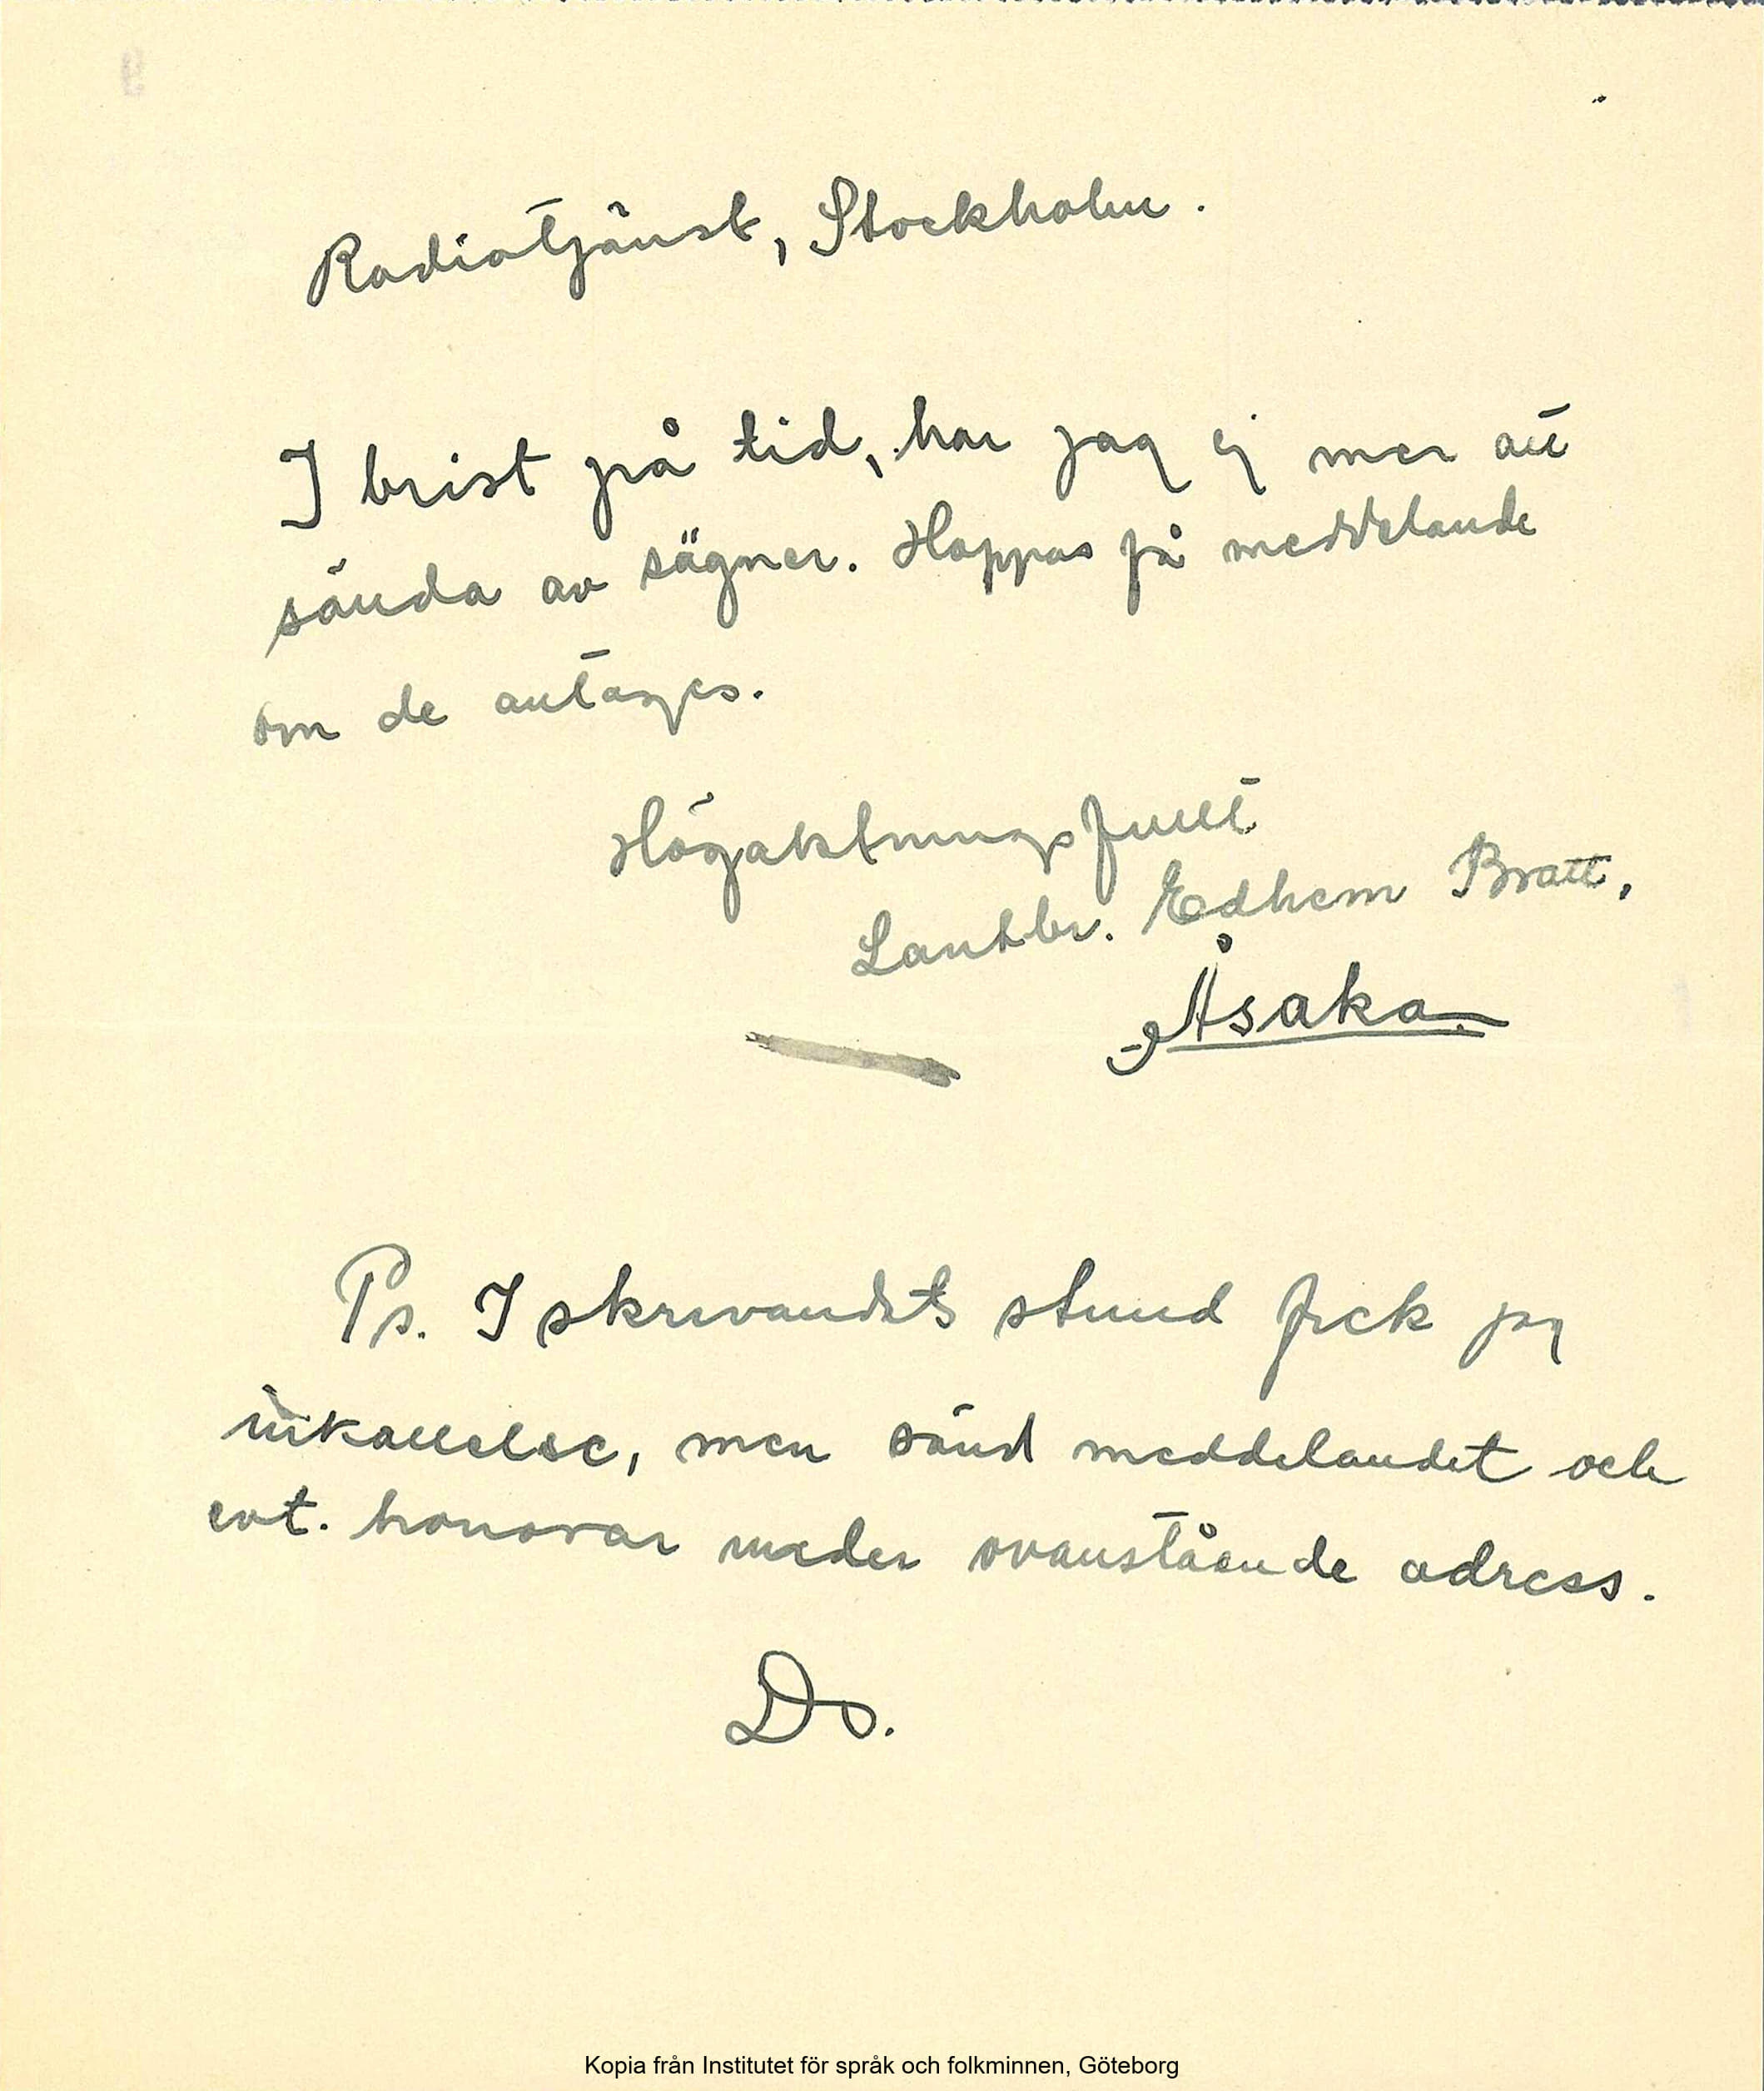 Radiotjänst, Stockholm.
I brist på tid, har jag ej mer att
sända av sägner. Hoppas få meddelande
om de antages.
Högaktningsfullt
Lantbr. Edhem Bratt,
Åsaka.
Ps. I skrivandets stund fick jag
inkallelse, men sänd meddelandet och
evt. honorar under ovanstående adress.
Ds.
Kopia från Institutet för språk och folkminnen, Göteborg